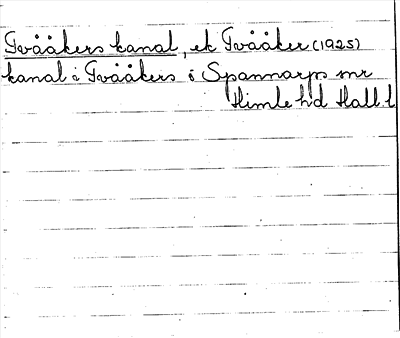 Tvååkers kanal, ek Tvååker (1925)
kanal i Tvååkers i Spannarps snr
Himle hd Hall. l